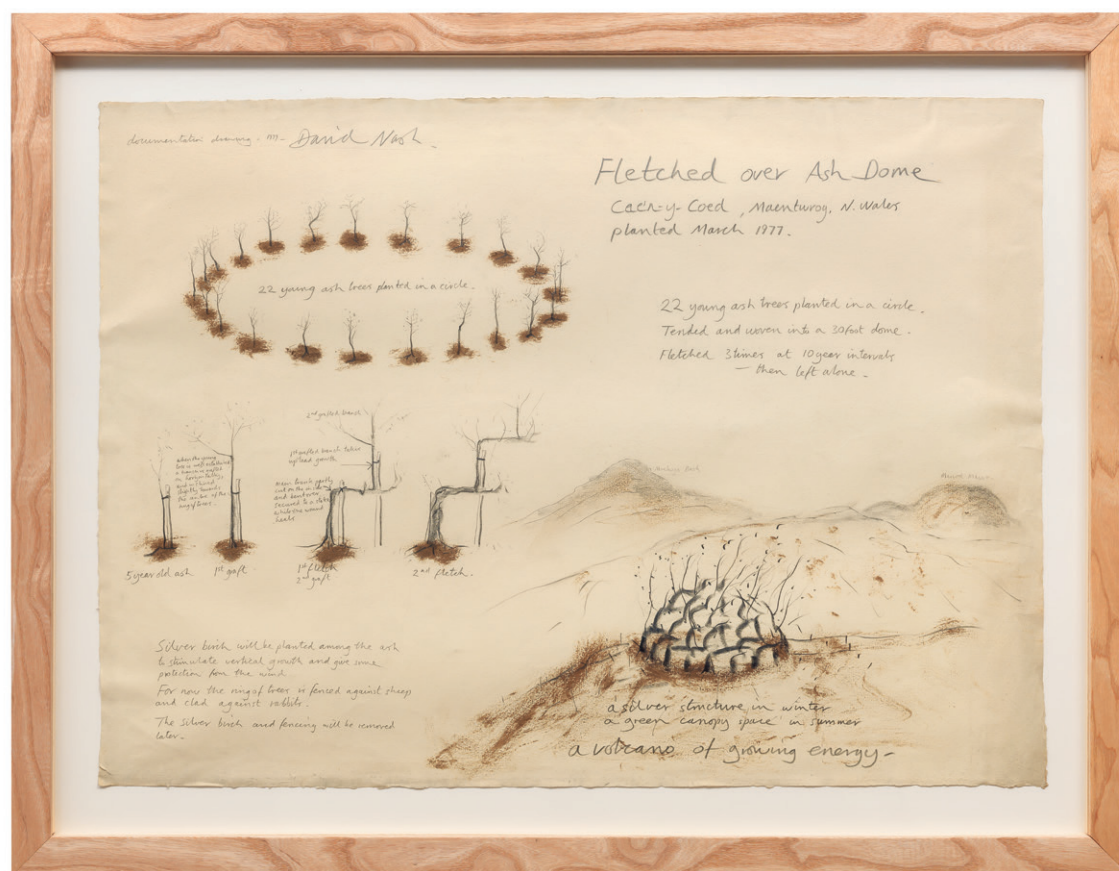 documentation drawing. 1977- David Nash.
Fletched over Ash Dome
Caen-y-Coed, Maentwrog, N. Wales
planted March 1977.
22 young ash trees planted in a circle.
22 young ash trees planted in a circle.
Tended and woven into a 30foot dome.
Fletched 3 times at 10 year intervals
— then left alone -
2nd grafted branch
1st grafted branch
upward growth
when the young
the centre of the
ring of trees.
and bent over
secured to a stake
while the wound
heals
5 year old ash
1st graft
1st fletch
2nd graft
2nd fletch.
Silver birch will be planted among the ash
to stimulate vertical growth and give some
protection from the wind.
For now the ring of trees is fenced against sheep
and clad against rabbits.
The silver birch and fencing will be removed
later -
a silver structure in winter
a green canopy space in summer
a volcano of growing energy -